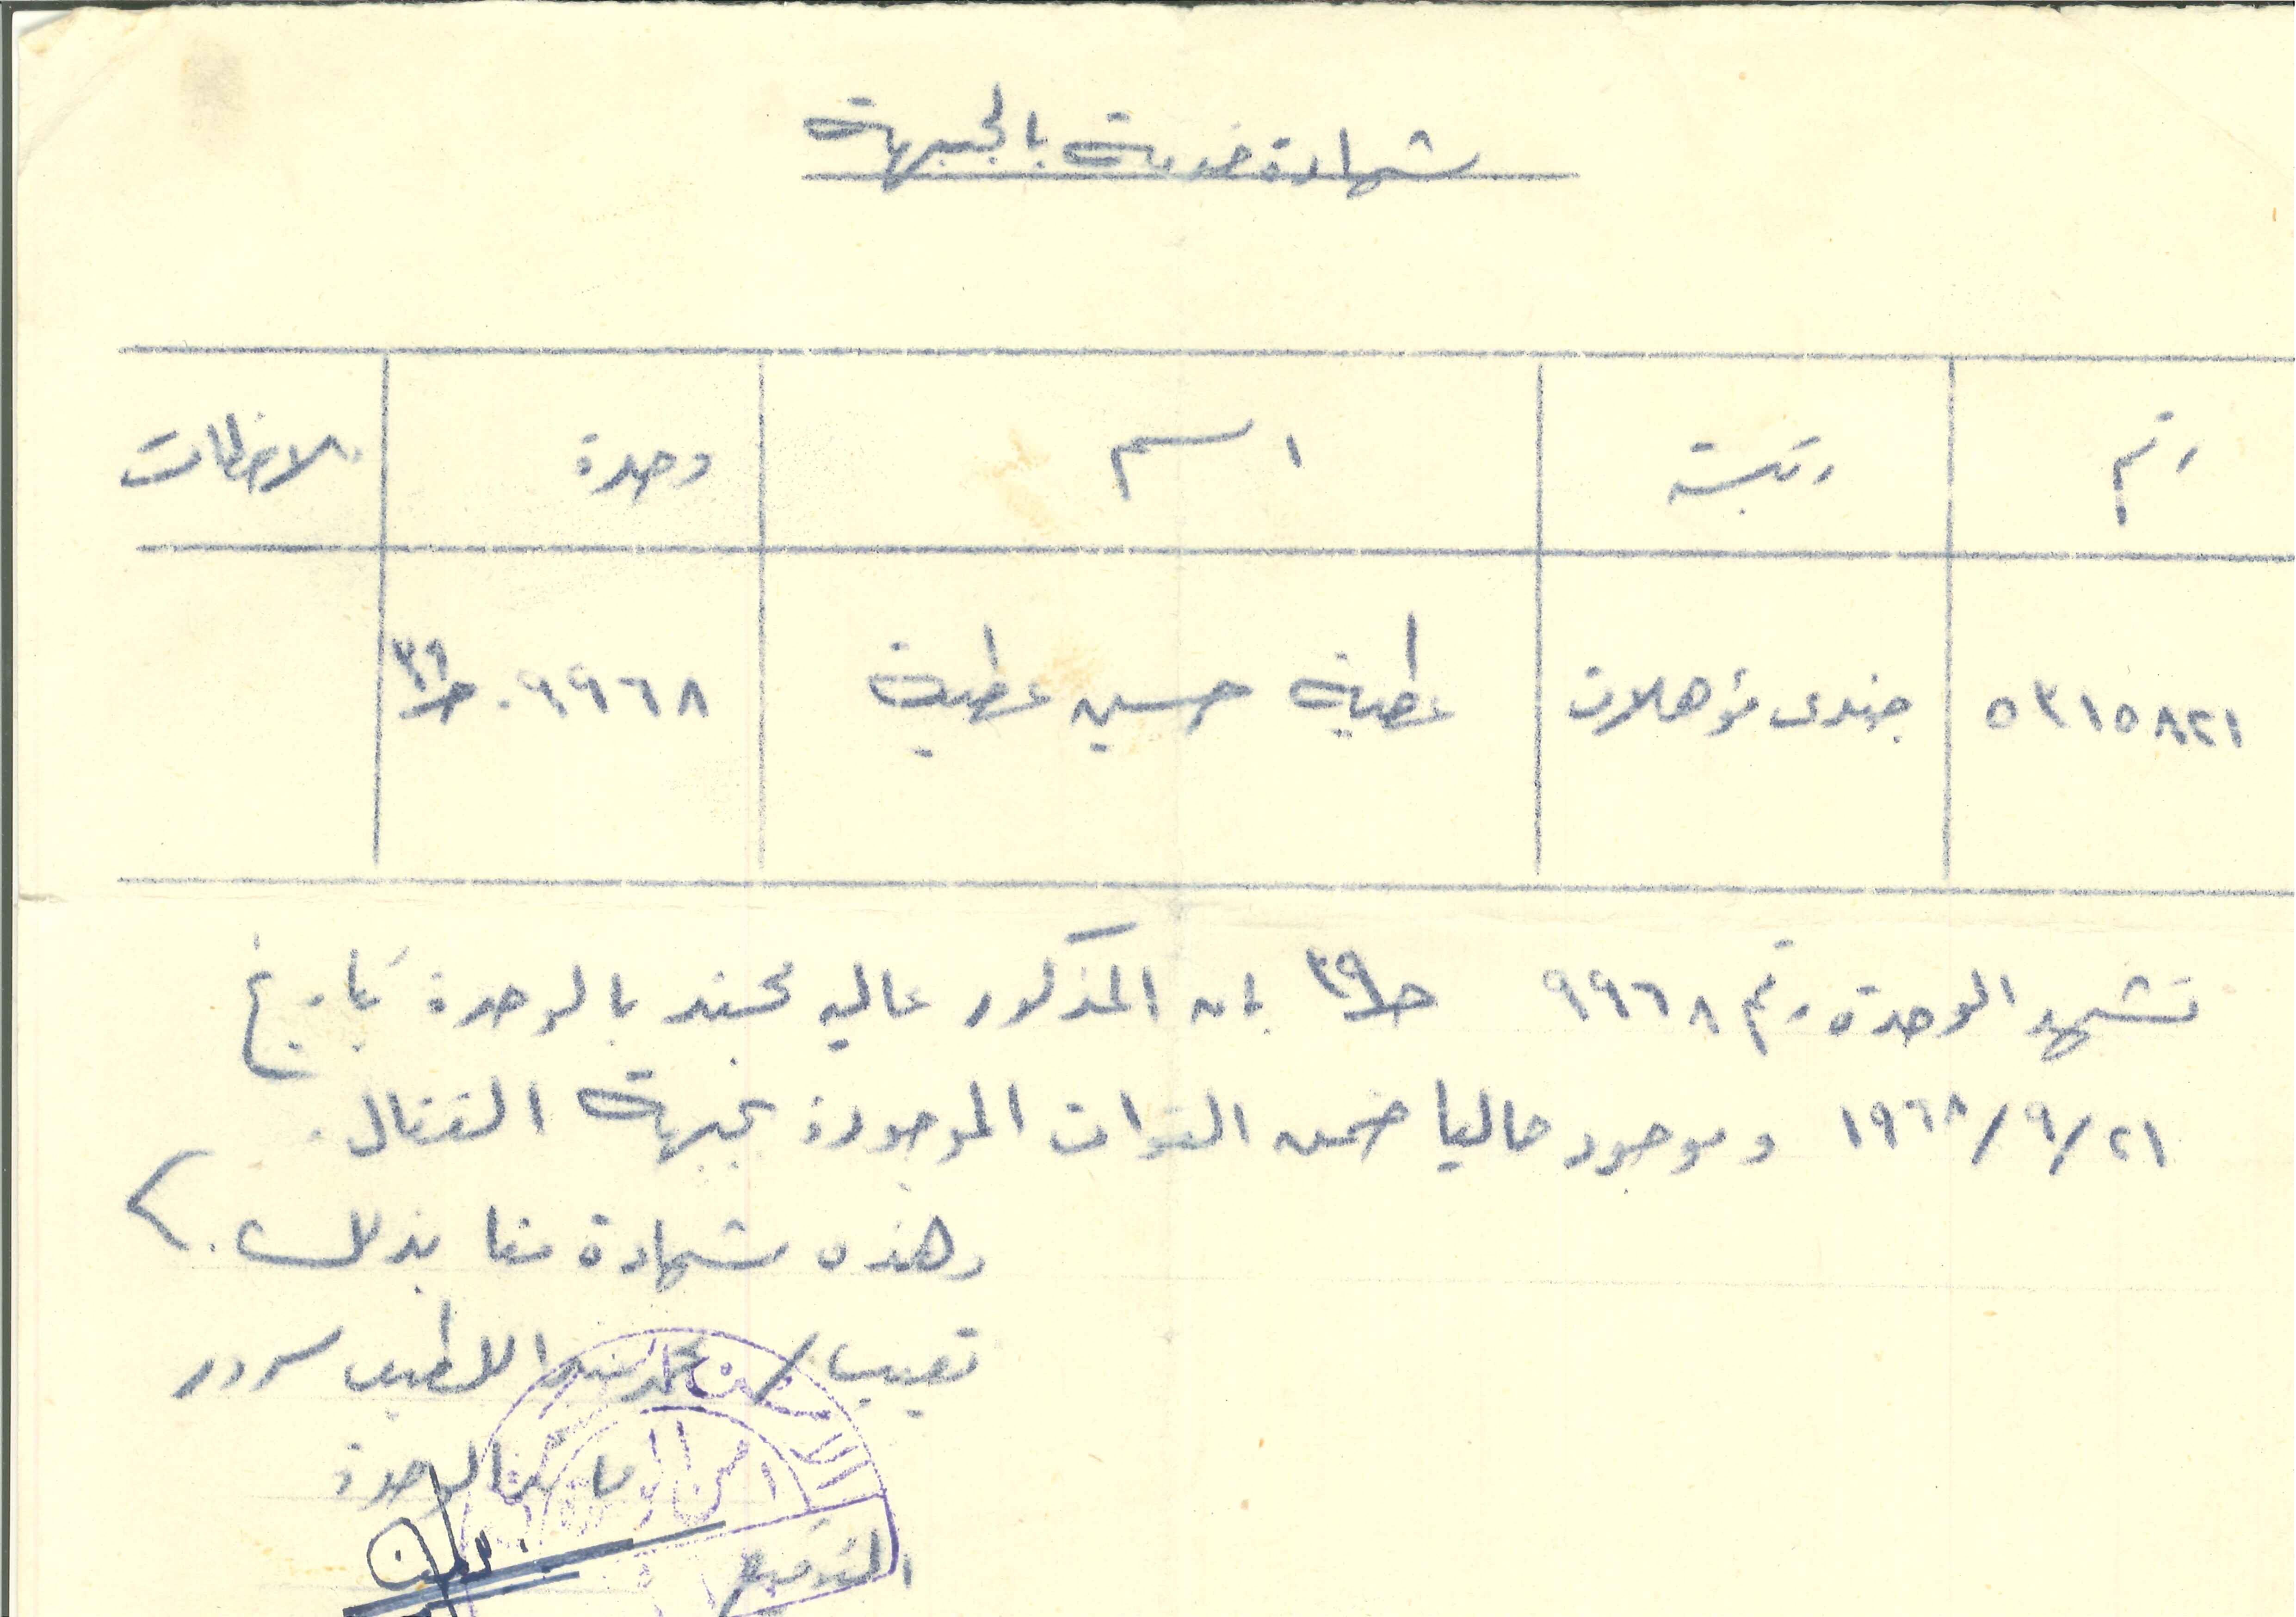 شهادة خدمة بالجبهة
رقم رتبة اسم وحدة ملاحظات
٥٣١٥٨٢١ جندى مؤهلات عطية حسين عطية ٩٩٦٨ جـ٣٩
تشهد الوحدة رقم ٩٩٦٨ جـ٣٩ بان المذكور عاليه مجند بالوحدة بتاريخ
٢١/٩/١٩٦٨ وموجود حاليا ضمن القوات الموجودة بجبهة القتال.
وهذه شهادة منا بذلك.
نقيب/ محمد عبد اللطيف سرور
قائد الوحدة
التوقيع